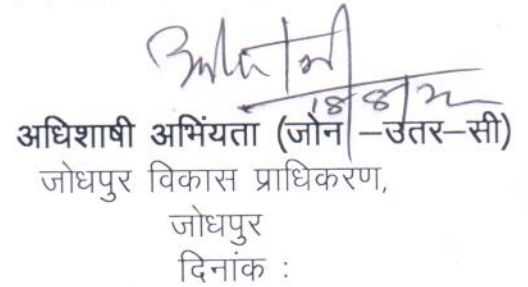 अधिशाषी अभिंयता (जोन –उतर–सी)
जोधपुर विकास प्राधिकरण,
जोधपुर
दिनांक :